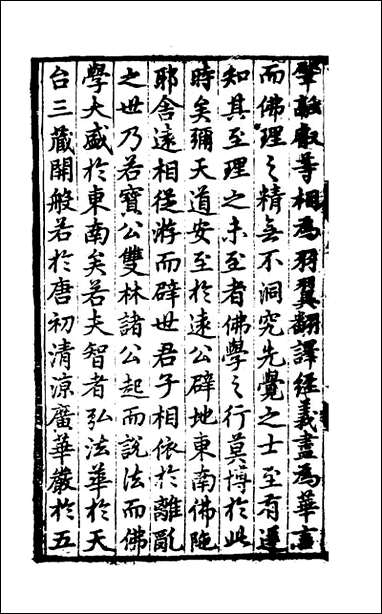 肇融叡等相為羽翼翻譯經義盡為華言
而佛理之精無不洞究先覺之士至有逆
知其至理之未至者佛學之行莫博於此
時矣彌天道安至於遠公辟地東南佛陁
耶舍遠相從游而辟世君子相依於離亂
之世乃若寶公雙林諸公起而說法而佛
學大盛於東南矣若夫智者弘法華於天
台三藏開般若於唐初清涼廣華嚴於五